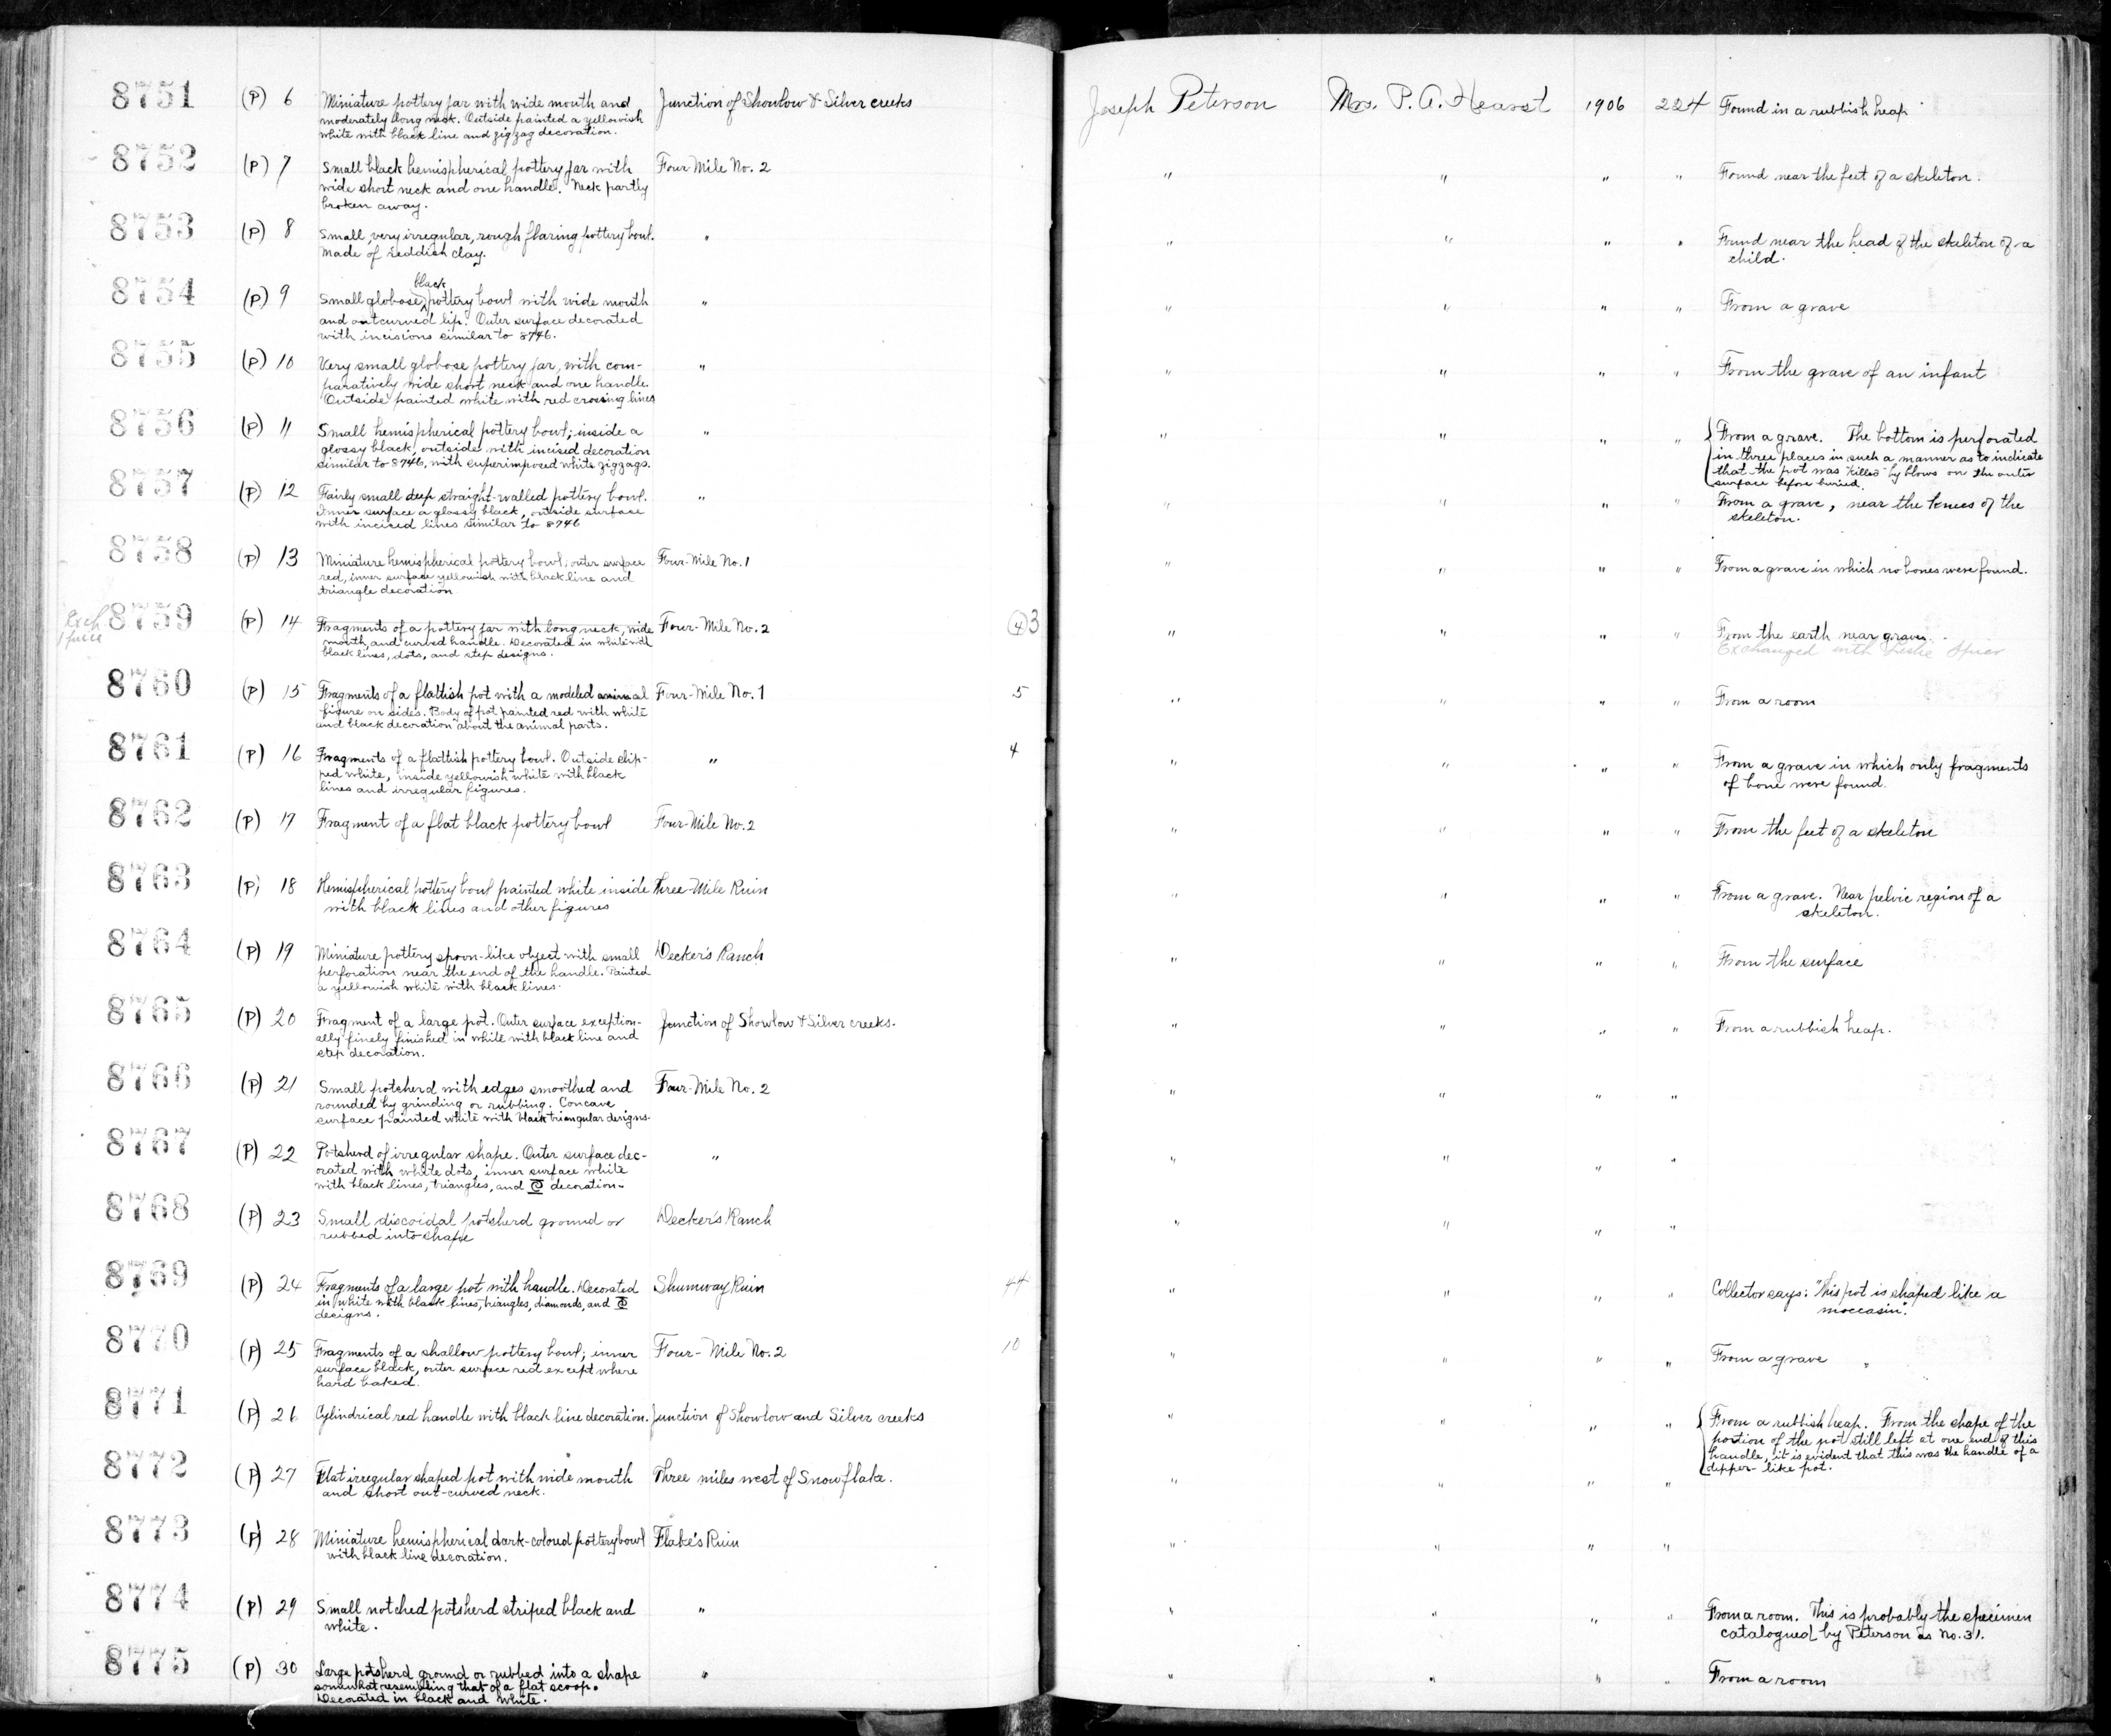 8751 (P) 6 Miniature pottery jar with wide mouth and Junction of Showlow & Silver creeks Joseph Peterson Mrs. P. A. Hearst 1906 224 Found in a rubbish heap
moderately long neck. Outside painted a yellowish
white with black line and zigzag decoration.
8752 (P) 7 Small black hemispherical pottery jar with Four-Mile No. 2 " " " " Found near the feet of a skeleton.
wide short neck and one handle. Neck partly
broken away.
8753 (P) 8 Small, very irregular, rough flaring pottery bowl. " " " " " Found near the head of the skeleton of a
Made of reddish clay. child.
black
8754 (P) 9 Small globose ^ pottery bowl with wide mouth " " " " " From a grave
and outcurved lip. Outer surface decorated
with incisions similar to 8746.
8755 (P) 10 Very small globose pottery jar, with com- " " " " " From the grave of an infant
paratively wide short neck and one handle.
Outside painted white with red crossing lines
8756 (P) 11 Small hemispherical pottery bowl; inside a " " " " " From a grave. The bottom is perforated
glossy black, outside with incised decoration in three places in such a manner as to indicate
similar to 8746, with superimposed white zigzags. that the pot was "killed" by blows on the outer
surface before buried.
8757 (P) 12 Fairly small deep straight-walled pottery bowl. " " " " " From a grave, near the knees of the
Inner surface a glossy black, outside surface skeleton.
with incised lines similar to 8746
8758 (P) 13 Miniature hemispherical pottery bowl, outer surface Four-Mile No. 1 " " " " From a grave in which no bones were found.
red, inner surface yellowish with black line and
triangle decoration
Exch.
1 piece
8759 (P) 14 Fragments of a pottery jar with long neck, wide Four-Mile No. 2 (4) 3 " " " " From the earth near graves.
mouth, and curved handle. Decorated in white with Exchanged with Leslie Spier
black lines, dots, and step designs.
8760 (P) 15 Fragments of a flattish pot with a modeled animal Four-Mile No. 1 5 " " " " From a room
figure on sides. Body of pot painted red with white
and black decoration about the animal parts.
8761 (P) 16 Fragments of a flattish pottery bowl. Outside slip- " 4 " " " " From a grave in which only fragments
ped white, inside yellowish white with black of bone were found.
lines and irregular figures.
8762 (P) 17 Fragment of a flat black pottery bowl Four-Mile No. 2 " " " " From the feet of a skeleton
8763 (P) 18 Hemispherical pottery bowl painted white inside Three-Mile Ruin " " " " From a grave. Near pelvic region of a
with black lines and other figures skeleton.
8764 (P) 19 Miniature pottery spoon-like object with small Decker's Ranch " " " " From the surface
perforation near the end of the handle. Painted
a yellowish white with black lines.
8765 (P) 20 Fragment of a large pot. Outer surface exception- Junction of Showlow & Silver creeks. " " " " From a rubbish heap.
ally finely finished in white with black line and
step decoration.
8766 (P) 21 Small potsherd with edges smoothed and Four-Mile No. 2 " " " "
rounded by grinding or rubbing. Concave
surface painted white with black triangular designs.
8767 (P) 22 Potsherd of irregular shape. Outer surface dec- " " " " "
orated with white dots, inner surface white
with black lines, triangles, and decoration.
8768 (P) 23 Small discoidal potsherd ground or Decker's Ranch " " " "
rubbed into shape
8769 (P) 24 Fragments of a large pot with handle. Decorated Shumway Ruin 44 " " " " Collector says: "This pot is shaped like a
in white with black lines, triangles, diamonds, and moccasin".
designs.
8770 (P) 25 Fragments of a shallow pottery bowl; inner Four-Mile No. 2 10 " " " " From a grave "
surface black, outer surface red except where
hard baked.
8771 (P) 26 Cylindrical red handle with black line decoration. Junction of Showlow and Silver creeks " " " " From a rubbish heap. From the shape of the
portion of the pot still left at one end of this
handle, it is evident that this was the handle of a
dipper-like pot.
8772 (P) 27 Flat irregular shaped pot with wide mouth Three miles west of Snowflake. " " " "
and short out-curved neck.
8773 (P) 28 Miniature hemispherical dark-colored pottery bowl Flake's Ruin " " " "
with black line decoration.
8774 (P) 29 Small notched potsherd striped black and " " " " " From a room. This is probably the specimen
white. catalogued by Peterson as No. 31.
8775 (P) 30 Large potsherd ground or rubbed into a shape " " " " " From a room
somewhat resembling that of a flat scoop.
Decorated in black and white.